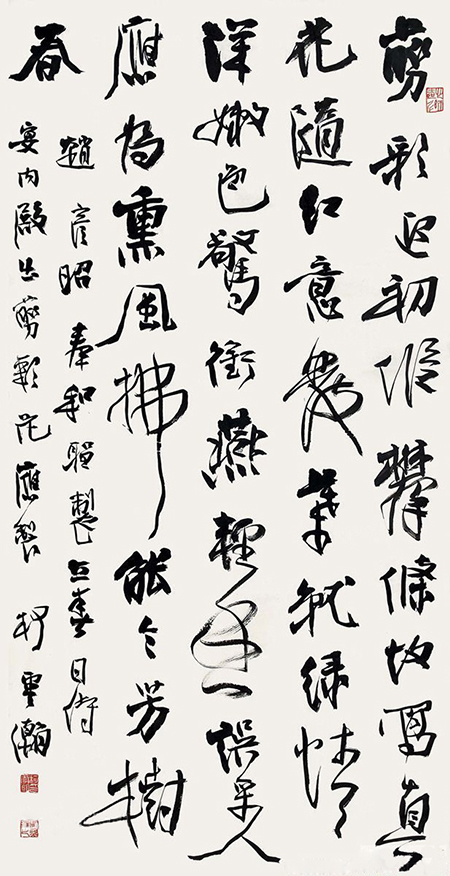 剪彩迎初候攀條故寫真
花隨紅意發葉就綠情
新嫩色驚銜燕輕香誤采人
應為熏風拂能令芳樹
春
趙彥昭奉和聖製立春日侍
宴内殿出剪彩花應製 柯雲瀚